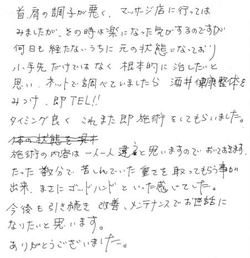 首、肩の調子が悪く、マッサージ店に行っては
みましたが、その時は楽になった気がするのですが
何日も経たないうちに元の状態になっており
小手先だけではなく根本的に治したいと
思い、ネットで調べていましたら 酒井健康整体を
みつけ、即TEL!!
タイミング良く これまた即施術をしてもらいました。
体の状態を
施術の内容は一人一人違うと思いますので おいておきます、
たった数分で、苦しんでいた重さを取ってもらう事が
出来、まさにゴッドハンドといった感いでした。
今後も引き続き 改善、メンテナンスでお世話に
なりたいと思います。
ありがとうございました。